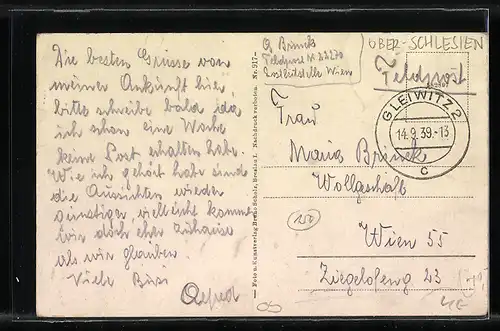 Die besten Grüsse von
meiner Ankunft hier,
bitte schreibe bald da
ich schon eine Woche
keine Post erhalten habe.
Wie ich gehört habe sind
die Aussichten wieder
günstiger vielleicht kommt
wir doch eher Zuhause
als wir glauben.
Viele Busi
Alfred
Foto u. Kunstverlag Bruno Scholz, Breslau I. Nachdruck verboten. Nr. 917
A Brinck
Feldpost N
Postleitstelle Wien
OBER-SCHLESIEN
Feldpost
GLEIWITZ 2
14.9.39.-13
c
Frau
Maria Brinck
Wollgeschäft
Wien 55
Ziegelofeng 23